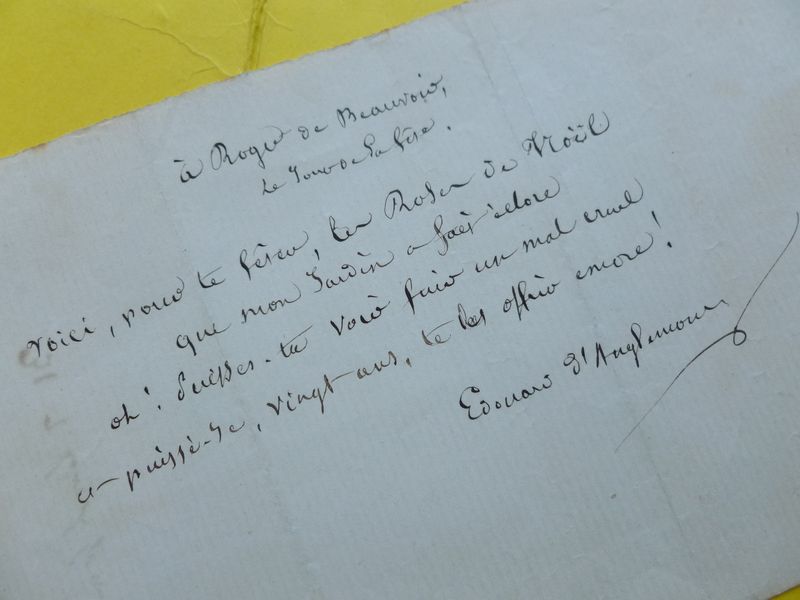 à Roger de Beauvoir,
Le Jour de Sa fête.
Voici, pour te fêter, les Roses de Noël
que mon Jardin a fait éclore
oh! Puisses-tu voir fuir un mal cruel
et puissè-Je, vingt ans, te les offrir encore!
Edouard d'Anglemont